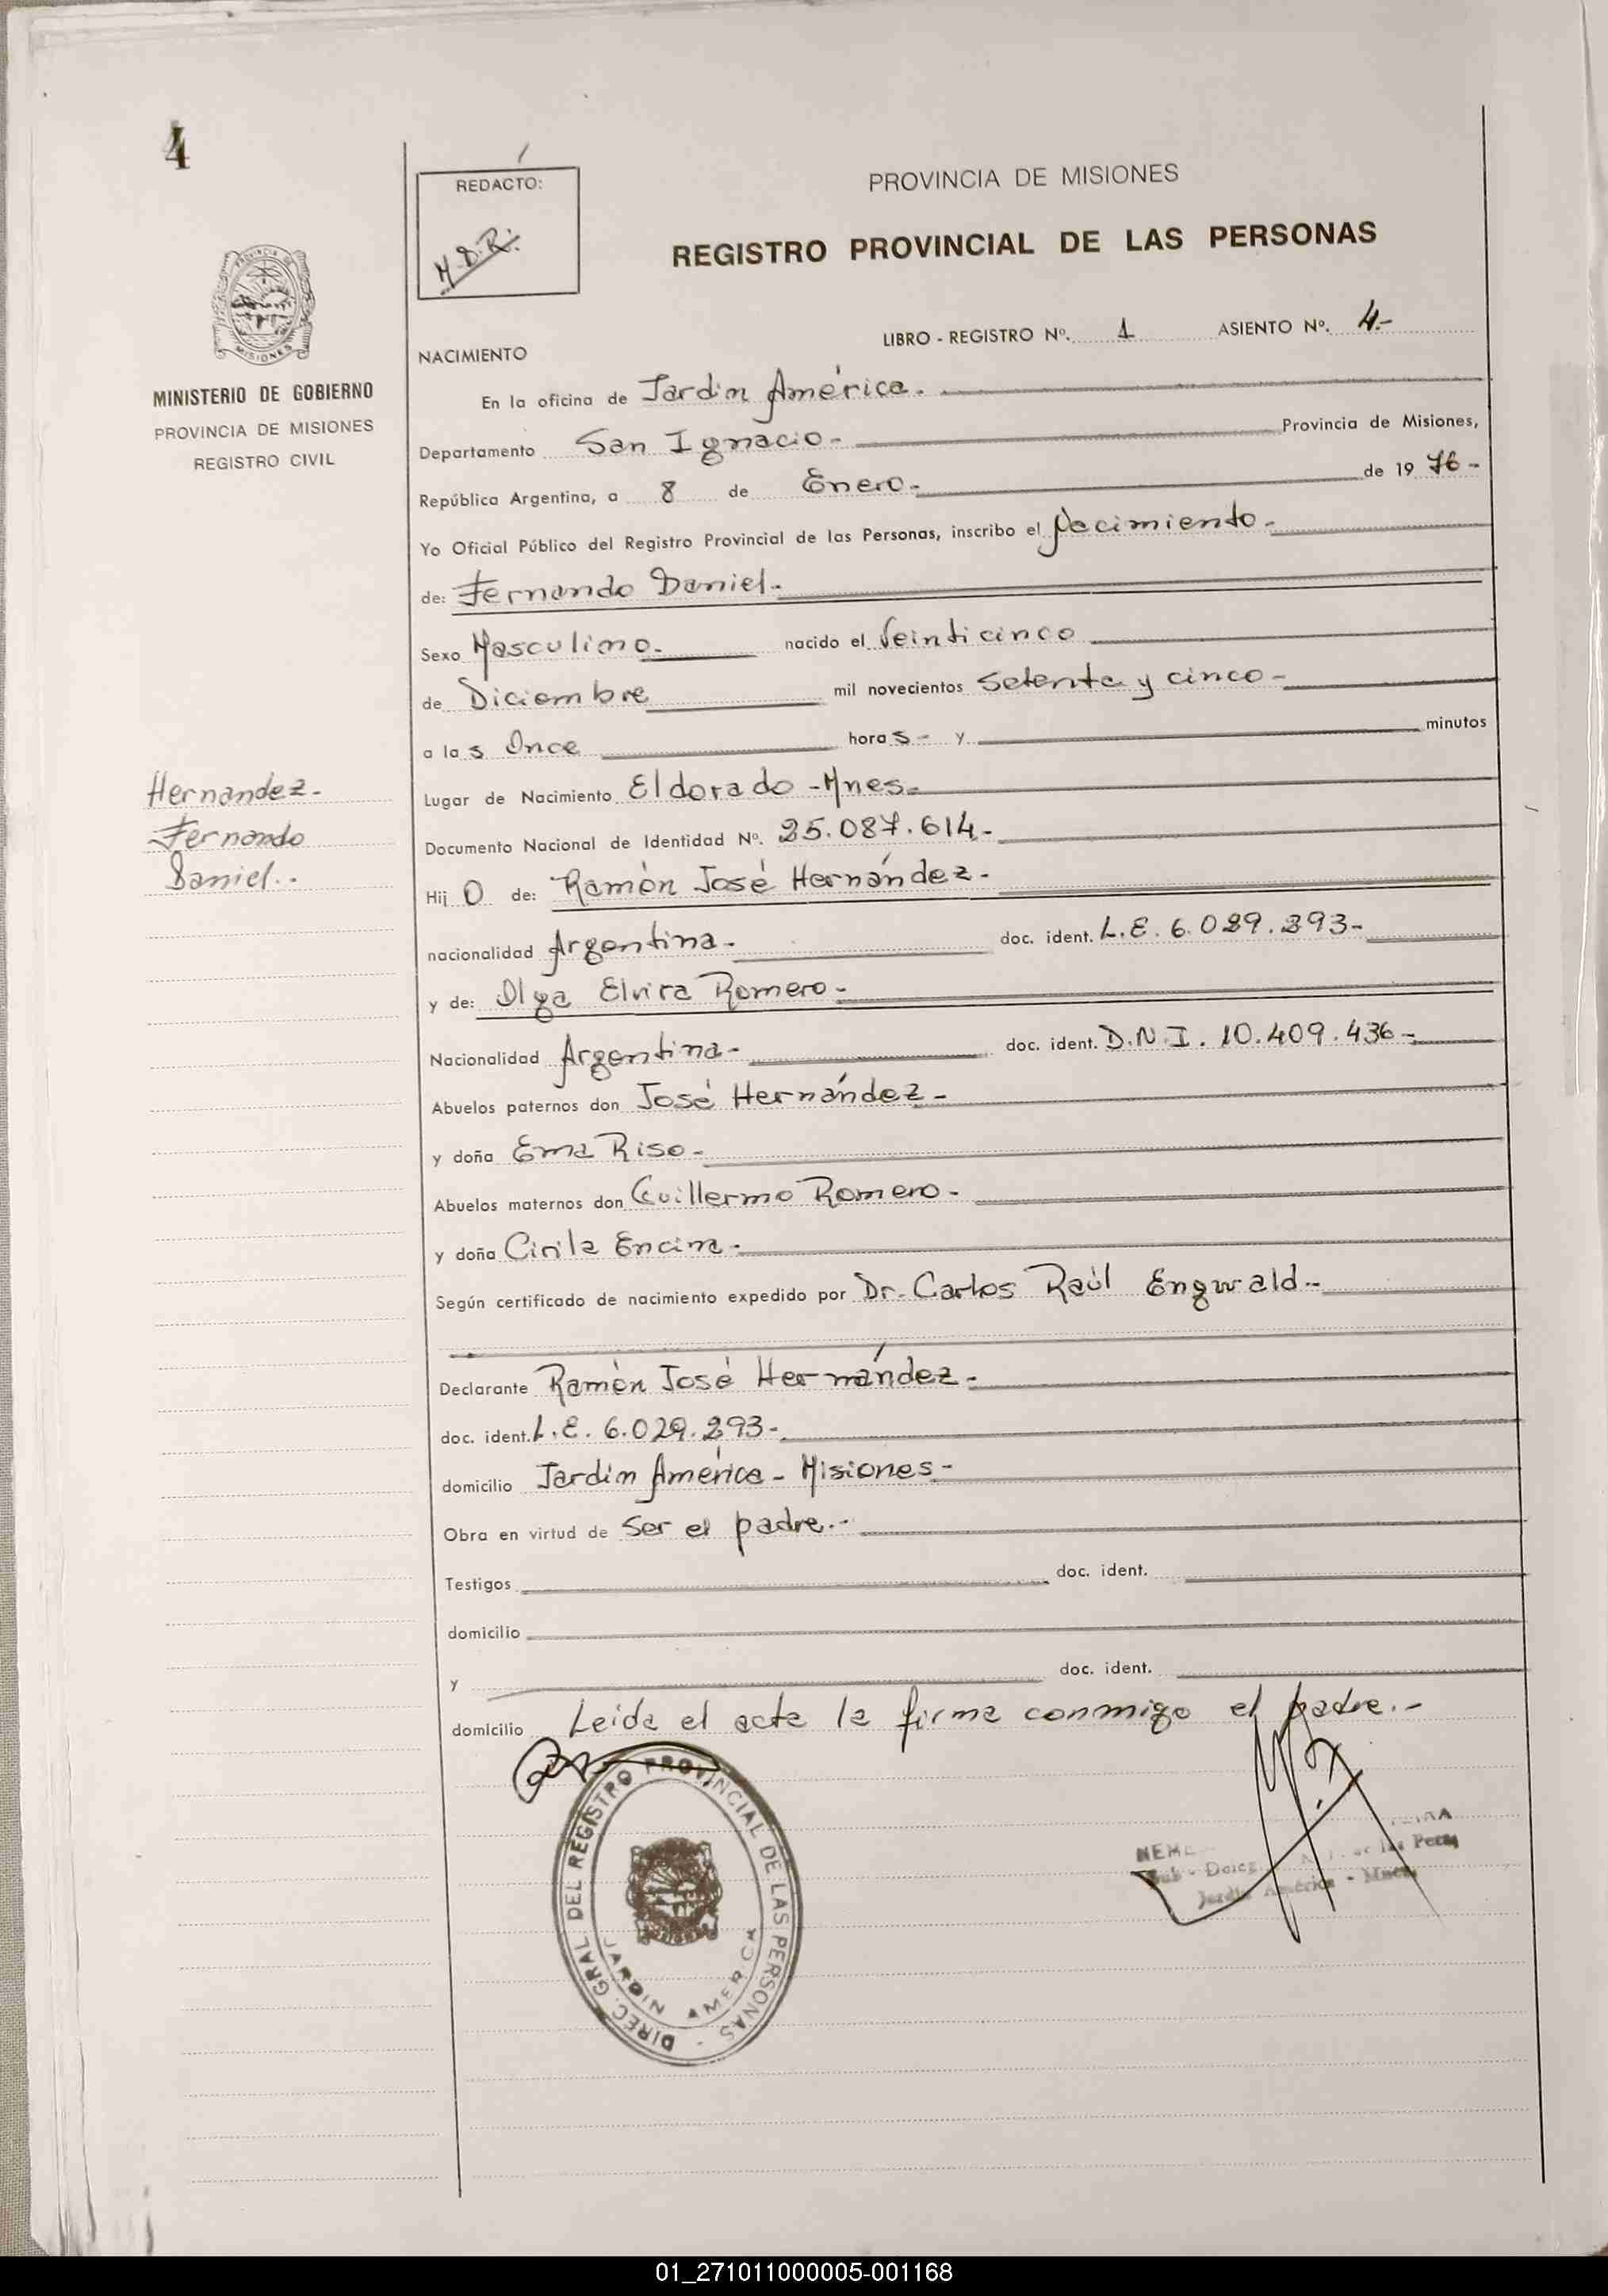 4
REDACTO:
M.D.R.
PROVINCIA DE MISIONES
REGISTRO PROVINCIAL DE LAS PERSONAS
LIBRO - REGISTRO Nº. 1 ASIENTO Nº. 4.-
MINISTERIO DE GOBIERNO
PROVINCIA DE MISIONES
REGISTRO CIVIL
NACIMIENTO
En la oficina de Jardin América.
Departamento San Ignacio- Provincia de Misiones,
República Argentina, a 8 de Enero- de 1976-
Yo Oficial Público del Registro Provincial de las Personas, inscribo el Nacimiento-
de: Fernando Daniel-
Sexo Masculino. nacido el Veinticinco
de Diciembre mil novecientos Setenta y cinco-
a las Once horas- y minutos
Hernandez-
Fernando
Daniel.-
Lugar de Nacimiento Eldorado -Mnes-
Documento Nacional de Identidad Nº. 25.087.614-
Hijo de: Ramón José Hernández-
nacionalidad Argentina- doc. ident. L.E. 6.029.293-
y de: Olga Elvira Romero-
Nacionalidad Argentina- doc. ident. D.N.I. 10.409.436-
Abuelos paternos don José Hernández-
y doña Ema Riso-
Abuelos maternos don Guillermo Romero-
y doña Cirila Encina-
Según certificado de nacimiento expedido por Dr. Carlos Raúl Engwald-
Declarante Ramón José Hernández-
doc. ident. L.E. 6.029.293-
domicilio Jardin América- Misiones-
Obra en virtud de ser el padre.-
Testigos doc. ident.
domicilio
y doc. ident.
domicilio Leida el acta la firma conmigo el padre.-
DIREC. GRAL DEL REGISTRO PROVINCIAL DE LAS PERSONAS -
JARDIN AMERICA
Jardín América - Mnes.
01_271011000005-001168